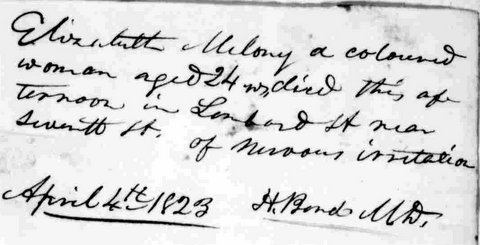 Elizabeth Melony a coloured
woman aged 24 yrs died this af
ternoon in Lombard St near
Seventh St. of nervous irritation
April 4th 1823 H. Bond MD,